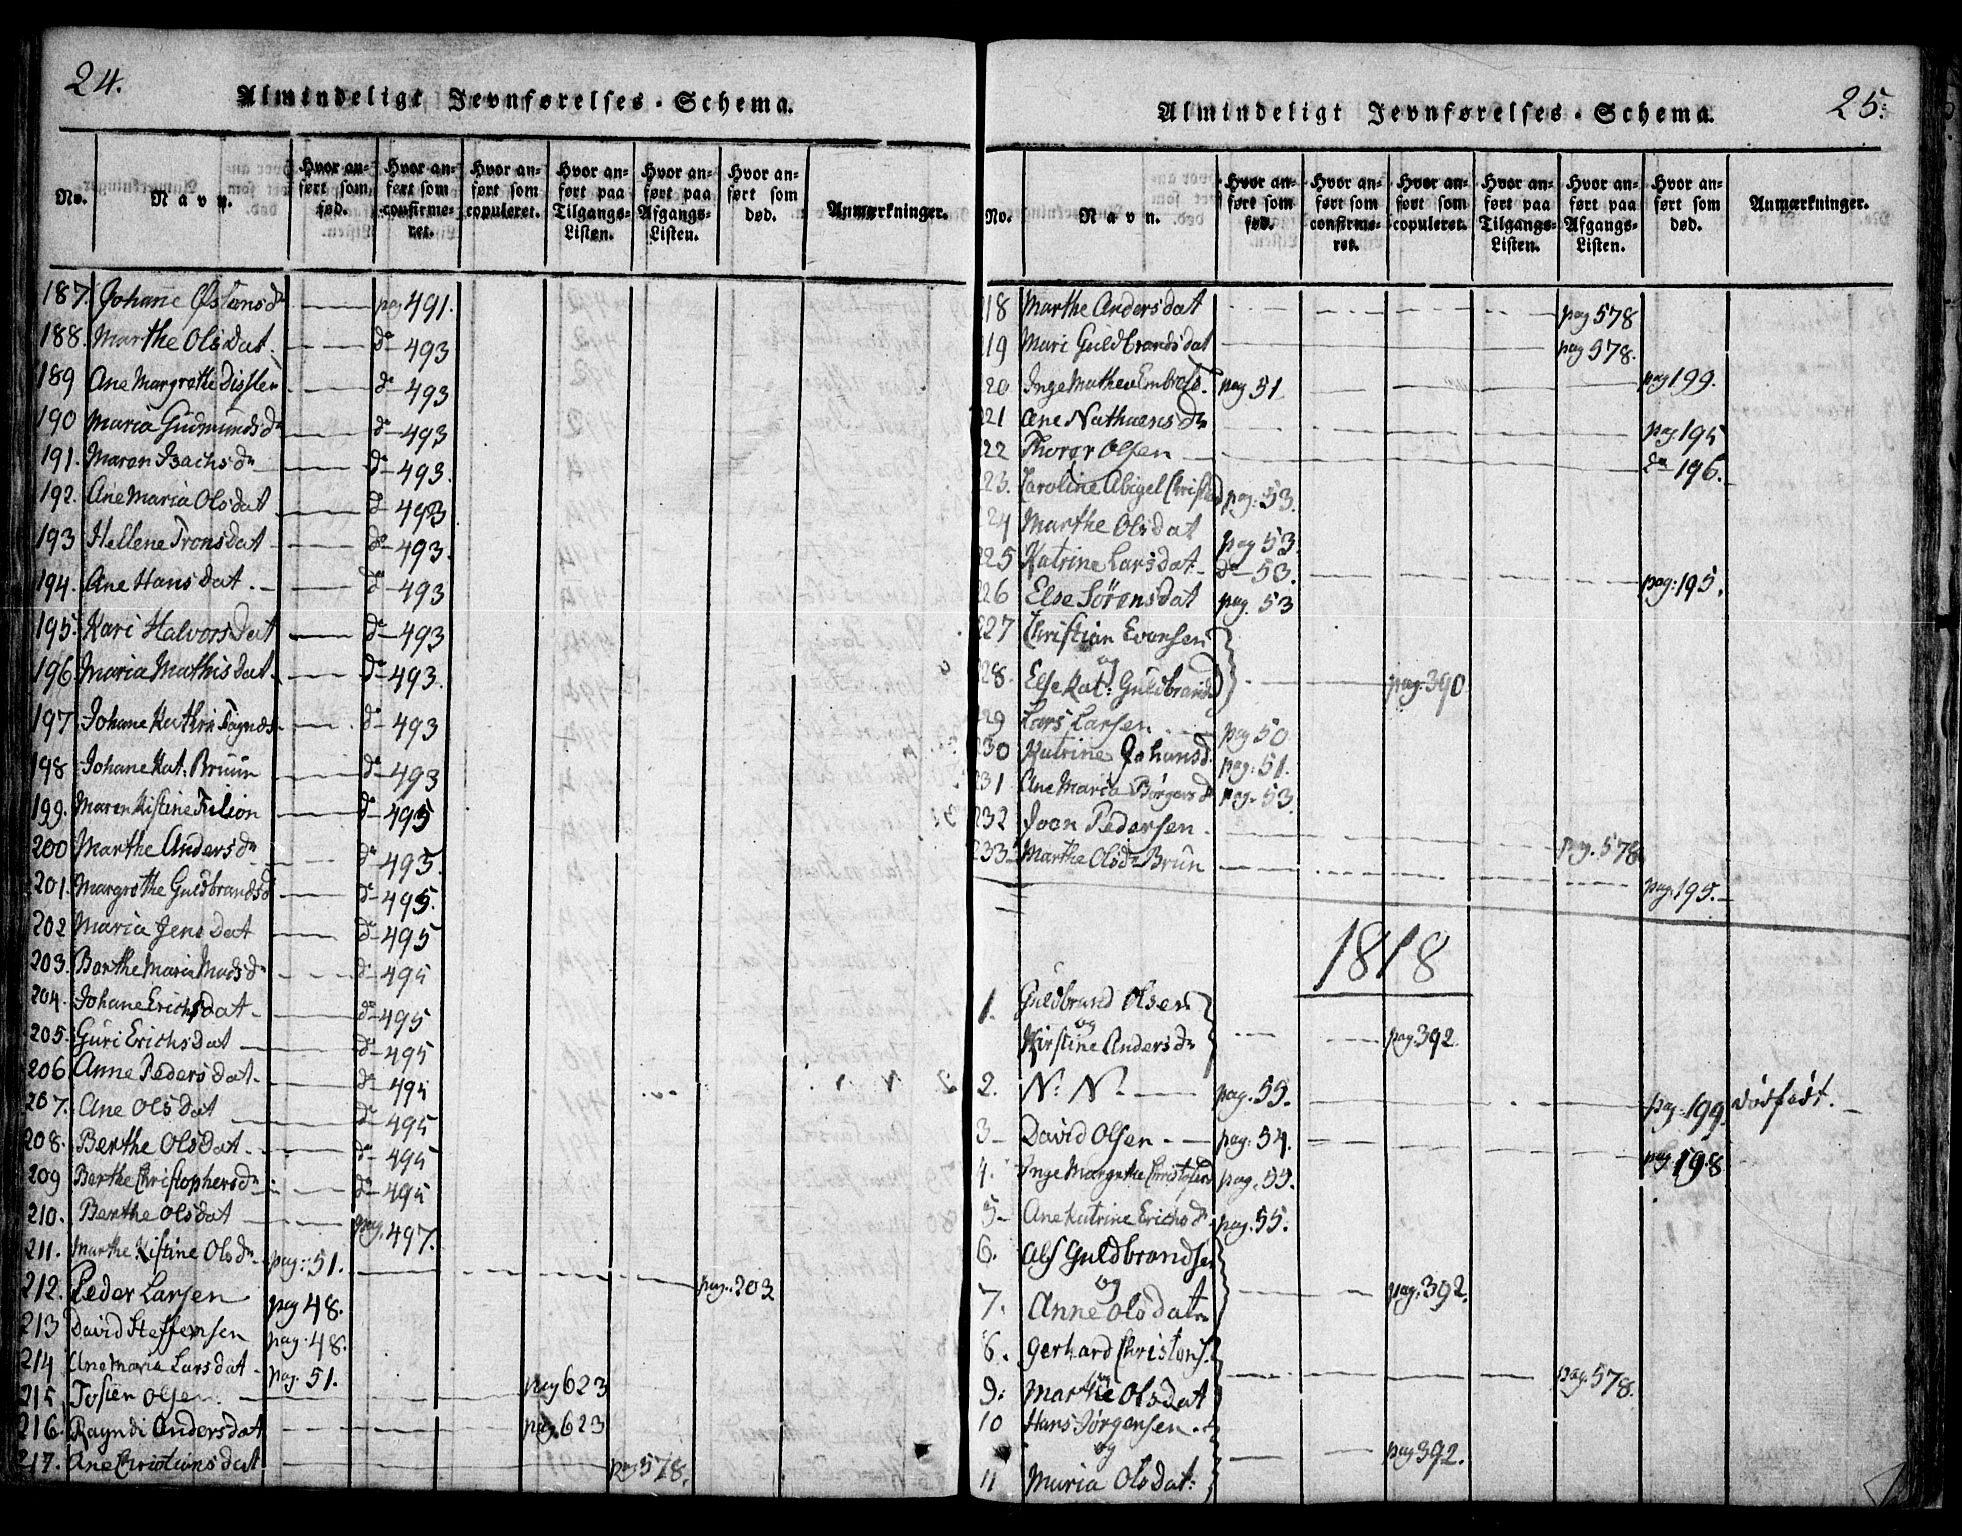 24.
Almindeligt Jevnførelses-Schema.
No. Navn. Hvor anført som fød. Hvor anført som confirmeret. Hvor anført som copuleret. Hvor anført paa Tilgangs-Listen. Hvor anført paa Afgangs-Listen. Hvor anført som død. Anmærkninger.
187. Johane pag 491.
188. Marthe Olsdat do 493
189 Ane Margrethe do 493
190 Maria Gudmundsdr do 493
191. Maren Isachsdr do 493.
192. Ane Maria Olsdat do 493
193 Hellene Tronsdat do 493.
194. Ane Hansdat do 493
195. Kari Halvorsdat do 493
196 Maria Mathisdat do 493.
197. Johane Kathrin do 493
198 Johane Kat: Bruun do 493
199. Maren Kistine do 495
200 Marthe Andersdr do 495.
201. Margrethe Guldbrandsd do 495.
202 Maria Jensdat do 495
203. Berthe Maria Madsdr do 495
204. Johane Erichsdat do 495
205. Guri Erichsdat do 495
206 Anne Pedersdat do 495
207. Ane Olsdat do 495
208. Berthe Olsdat do 495
209 Berthe Christophersdr do 495
210. Berthe Olsdat pag 497.
211. Marthe Kistine Olsdr pag: 51. pag. 203
212. Peder Larsen pag 48.
213 David Steffensen pag. 48.
214 Ane Maria Larsdat pag. 51.
215 Olsen pag 623
216. Rayndi Andersdat pag. 623
217. Ane Christiansdat pag 578.
25.
Almindeligt Jevnførelses-Schema.
No. Navn. Hvor anført som fød. Hvor anført som confirmeret. Hvor anført som copuleret. Hvor anført paa Tilgangs-Listen. Hvor anført paa Afgangs-Listen. Hvor anført som død. Anmærkninger.
218 Marthe Andersdat pag 578
219 Mari Guldbrandsdat pag 578.
220 Inge Mathea pag 51 pag 199.
221 Ane Nathaensdr pag 195
222 Thorer Olsen do 196.
223. Caroline Abigel pag: 53.
224 Marthe Olsdat pag 53
225 Katrine Larsdat do 53. pag: 195.
226 Else Sørensdat pag. 53
227 Christian Evensen
og
228. Else Kat: Guldbrands pag. 390
229 Lars Larsen pag 50
230 Katrine Johansd. pag: 51.
231 Ane Maria Børgersdr pag. 53
232 Joon Pedersen pag. 578
233 Marthe Olsdr Brun pag. 195.
1818
1. Guldbrand Olsen
og
Kirstine Andersdr pag. 392.
2. N. N. pag. 55. pag. 199 dødfødt.
3 David Olsen pag: 54. pag 198
4. Inge Margrethe pag. 55.
5 Ane Katrine Erichsdr pag. 55.
6. Ols Guldbrandsen
og
7. Anne Olsdat pag. 392.
8. Gerhard
og
9. Marthe Olsdat pag. 578.
10 Hans Jørgensen
og
11 Maria Olsdat: pag 392.